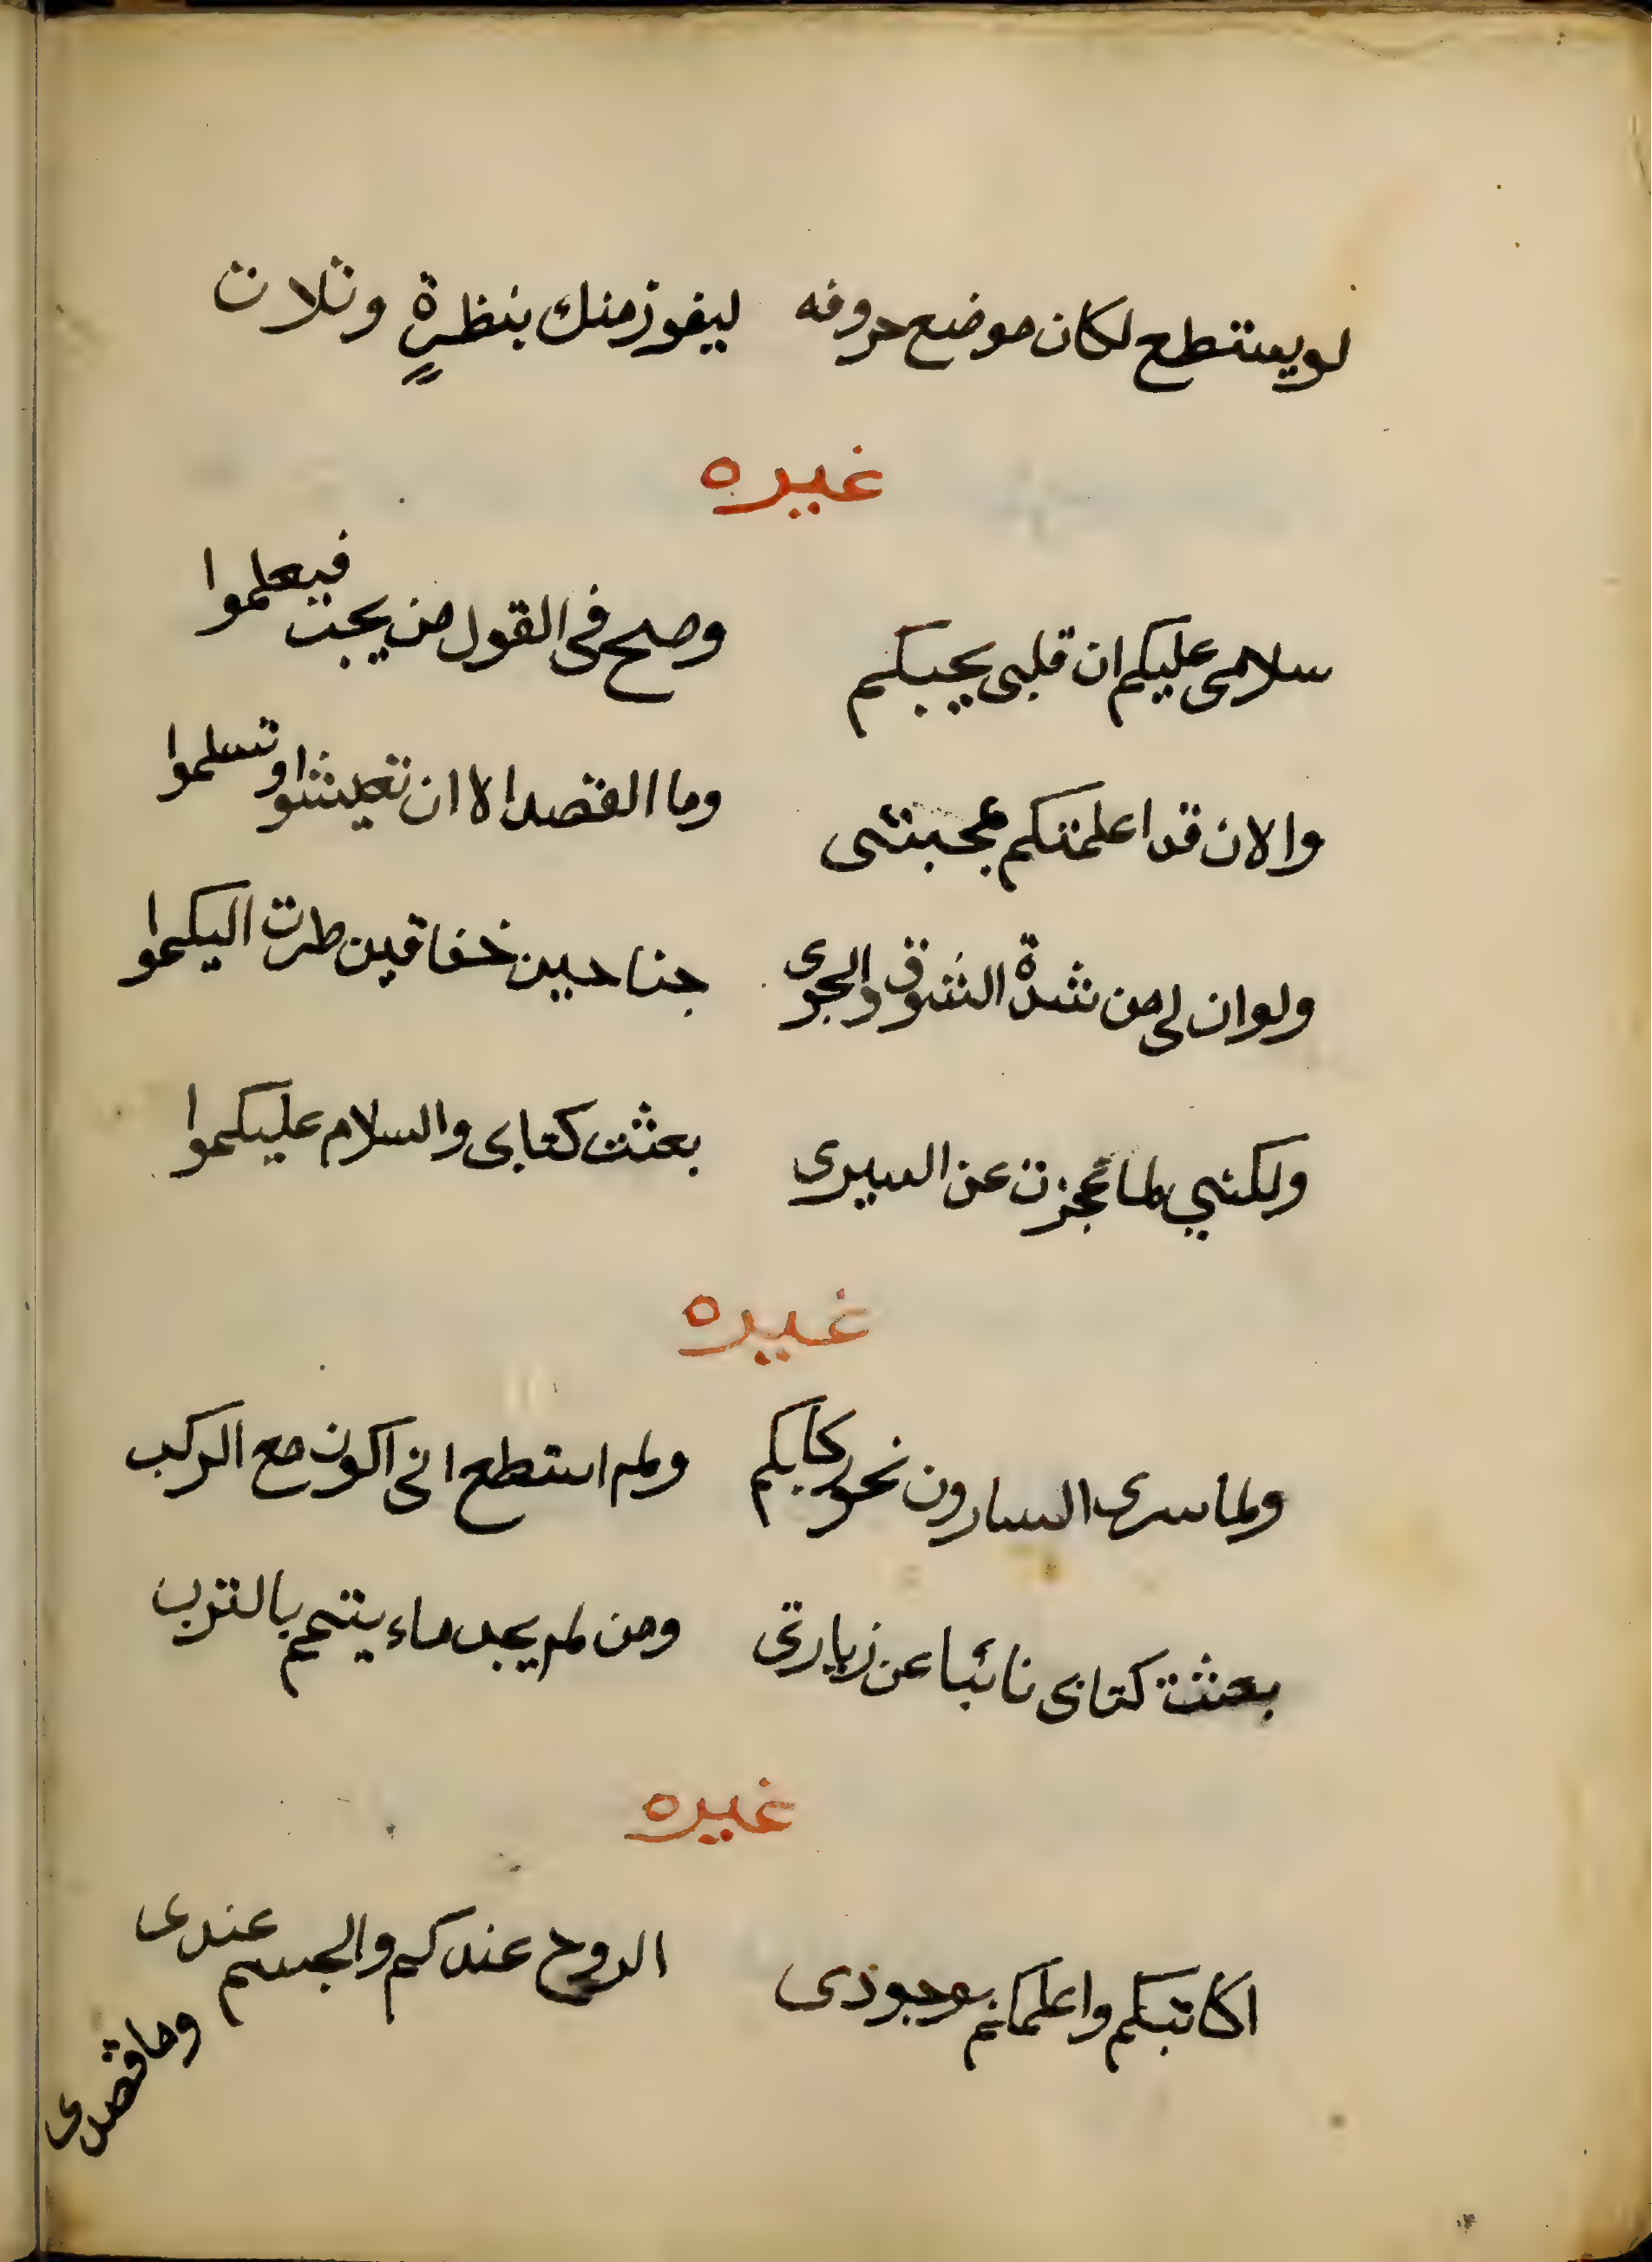 لويستطع لكان موضع حروفه ليفوز منك بنظرةٍ وثلاث
غيره
سلامى عليكم ان قلبى يحبكم وصح فى القول من يحب فيعلموا
والان قد اعلمتكم بمحبتى وما القصد الا ان تعيشوا وتسلموا
ولوان لى من شدة الشوق والجوى جناحين خفاقين طرت اليكموا
ولكننى لما عجزت عن السيرى بعثت كتابى والسلام عليكموا
غيره
ولما سرى السارون نحو ركابكم ولم استطع انى اكون مع الركب
بعثت كتابى نائبا عن زيارتى ومن لم يجد ماء يتيمم بالترب
غيره
اكاتبكم واعلمكم بوجودى الروح عندكم والجسم عندى
وما قصدى